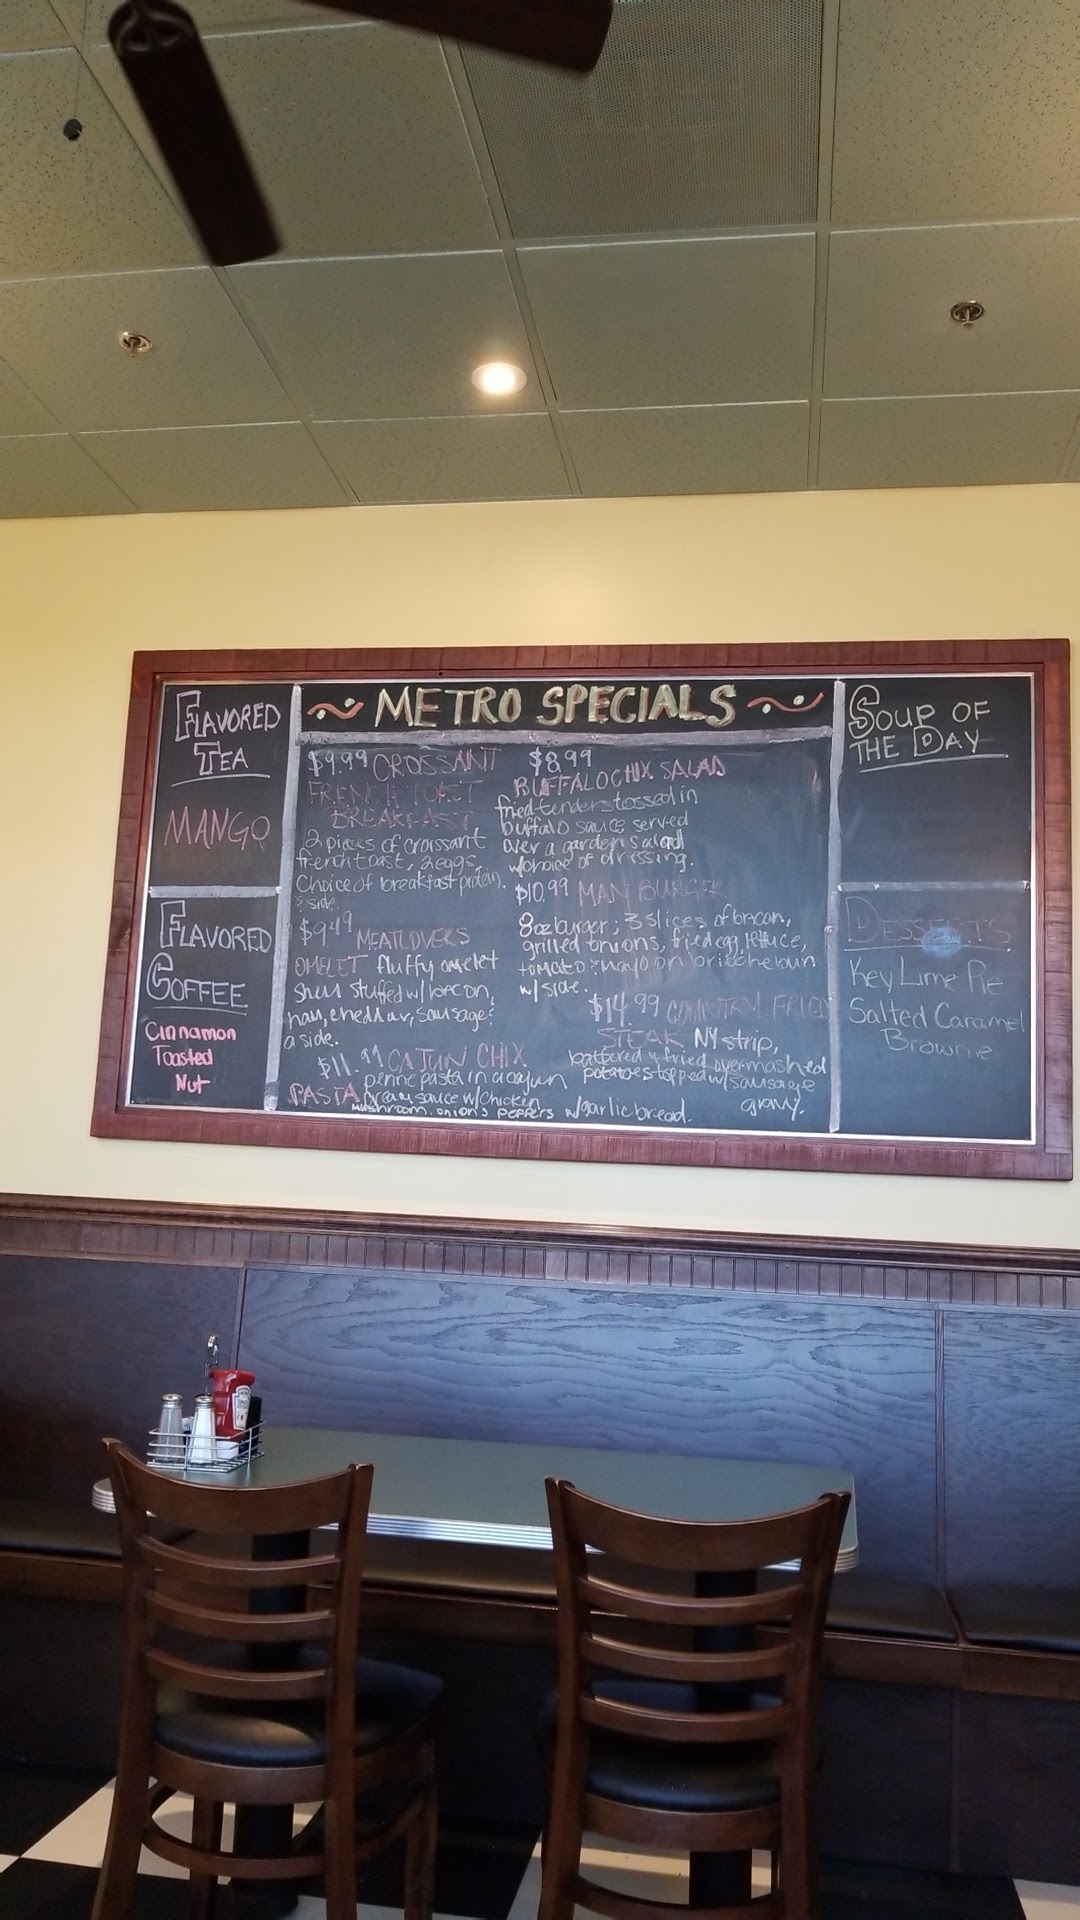 FLAVORED
TEA
MANGO
FLAVORED
COFFEE
Cinnamon
Toasted
Nut
METRO SPECIALS
$9.99 CROSSAINT
FRENCH TOAST
BREAKFAST
2 pieces of croissant
frenchtoast, 2eggs,
Choice of breakfast protein.
& side
$9.49 MEATLOVERS
OMELET fluffy omelet
Shell stuffed w/bacon,
ham, cheddar, sausage &
a side.
$11.99 CAJUN CHIX
PASTA penne pasta in a cajun
cream sauce w/Chicken
MUShROOM, ONIONS PEPPERS w/garlic bread.
$8.99
BUFFALO CHIX SALAD
fried tenders tossed in
buffalo sauce served
over a garden salad
w/choice of dressing.
$10.99 MAN BURGER
8oz burger; 3 slices of bacon,
grilled onions, fried egg, lettuce,
tomato & mayo on brioche bun
w/ side.
$14.99 COUNTRY FRIED
STEAK NY strip,
battered & fried over mashed
potatoes topped w/ sausage
gravy.
SOUP OF
THE DAY
DESSERTS
Key Lime Pie
Salted Caramel
Brownie